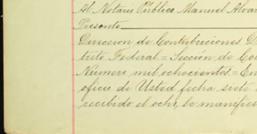 Al Notario Público Manuel Alvar
Presente
Direccion de Contribuciones D
trito Federal = Sección de Co
Número mil ochocientos = En
oficio de Usted fecha siete
recibido el ocho, so manifies